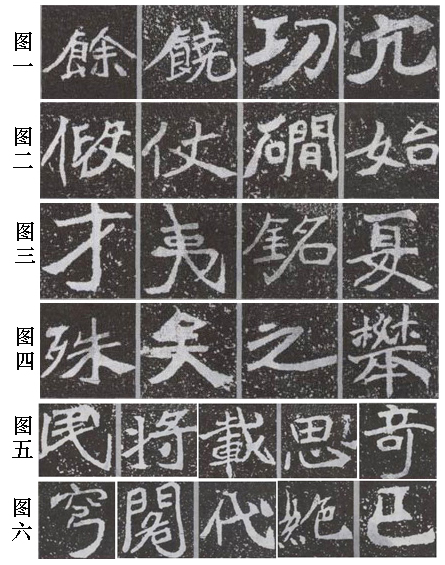 图一 餘 饒 功 穴
图二 假 仗 磵 始
图三 才 夷 銘 夏
图四 殊 矣 之
图五 民 將 載 思 奇
图六 穹 閣 代 絶 已